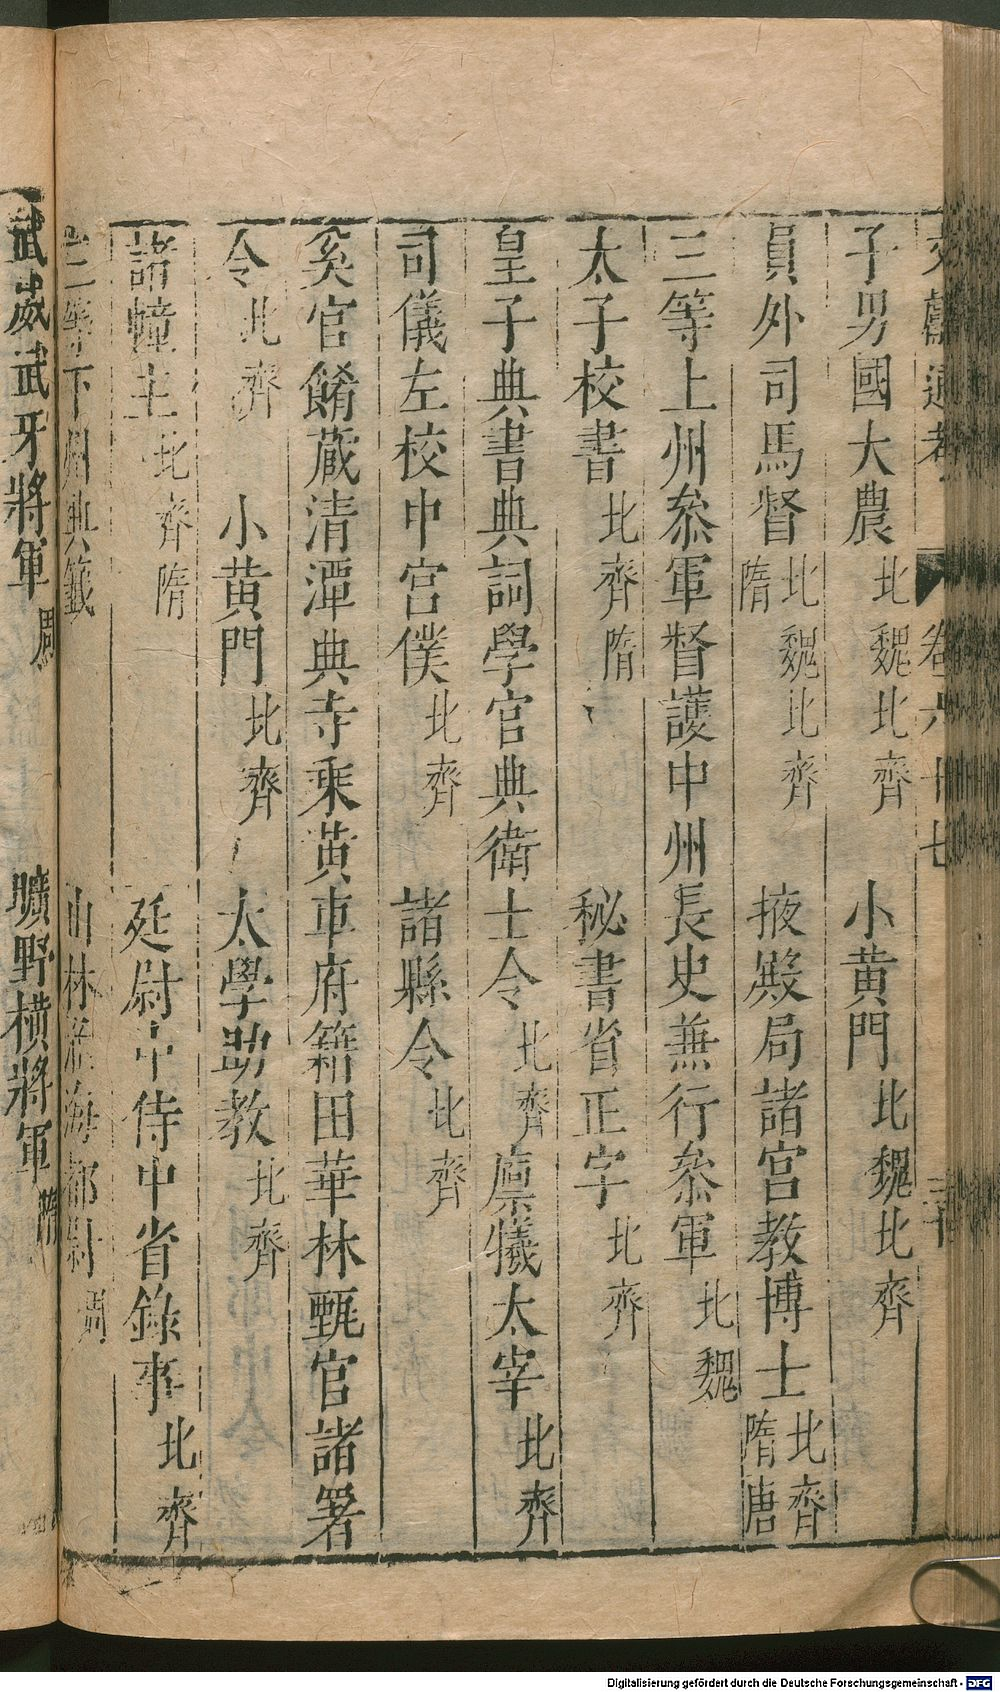 文獻通考 卷六十七 三十
子男國大農 北魏北齊 小黃門 北魏北齊
員外司馬督 北魏北齊隋 掖殿局諸宮教博士 北齊隋唐
三等上州叅軍督護中州長史兼行叅軍 北魏
太子校書 北齊隋 秘書省正字 北齊
皇子典書典詞學官典衛士令 北齊 廩犧太宰 北齊
司儀左校中宮僕 北齊 諸縣令 北齊
奚官餚藏清潭典寺乘黃車府籍田華林甄官諸署
令 北齊 小黃門 北齊 太學助教 北齊
諸幢主 北齊隋 廷尉中侍中省錄事 北齊
二等下州典籖 山林海都尉 周
武威武牙將軍 周 曠野橫將軍 隋
Digitalisierung gefördert durch die Deutsche Forschungsgemeinschaft - DFG